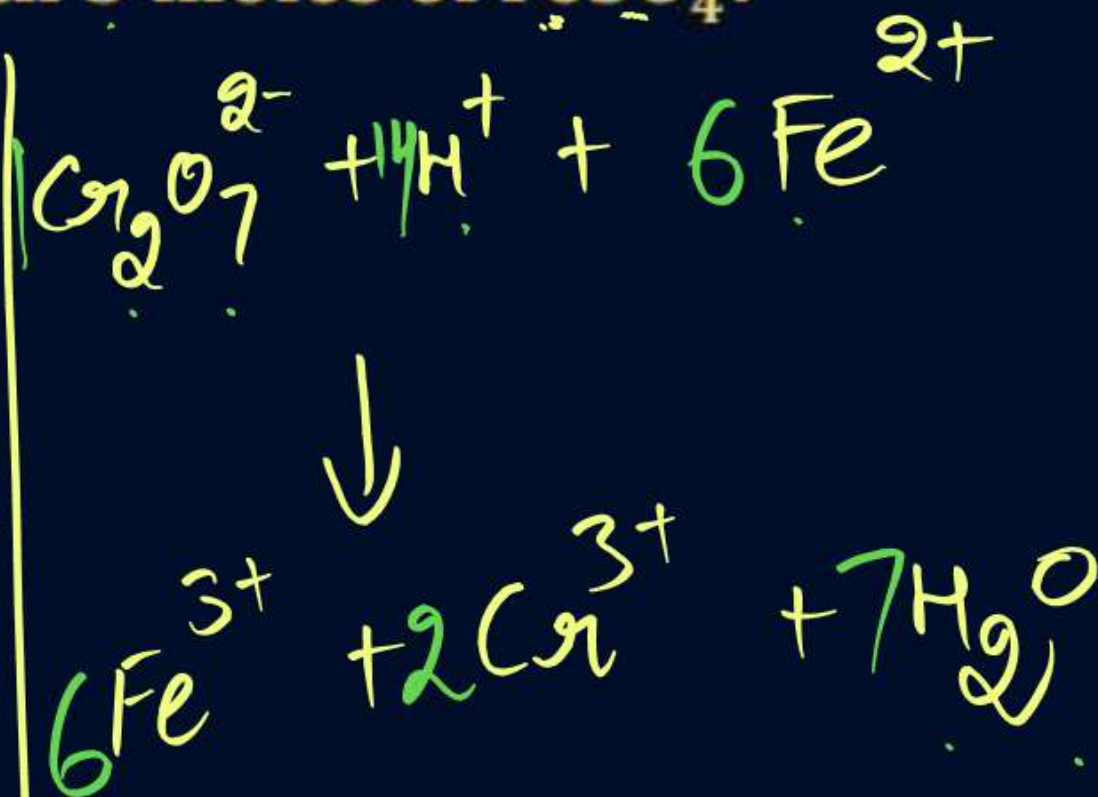 4
1Cr₂O₇²⁻ + 14H⁺ + 6Fe²⁺
↓
6Fe³⁺ + 2Cr³⁺ + 7H₂O